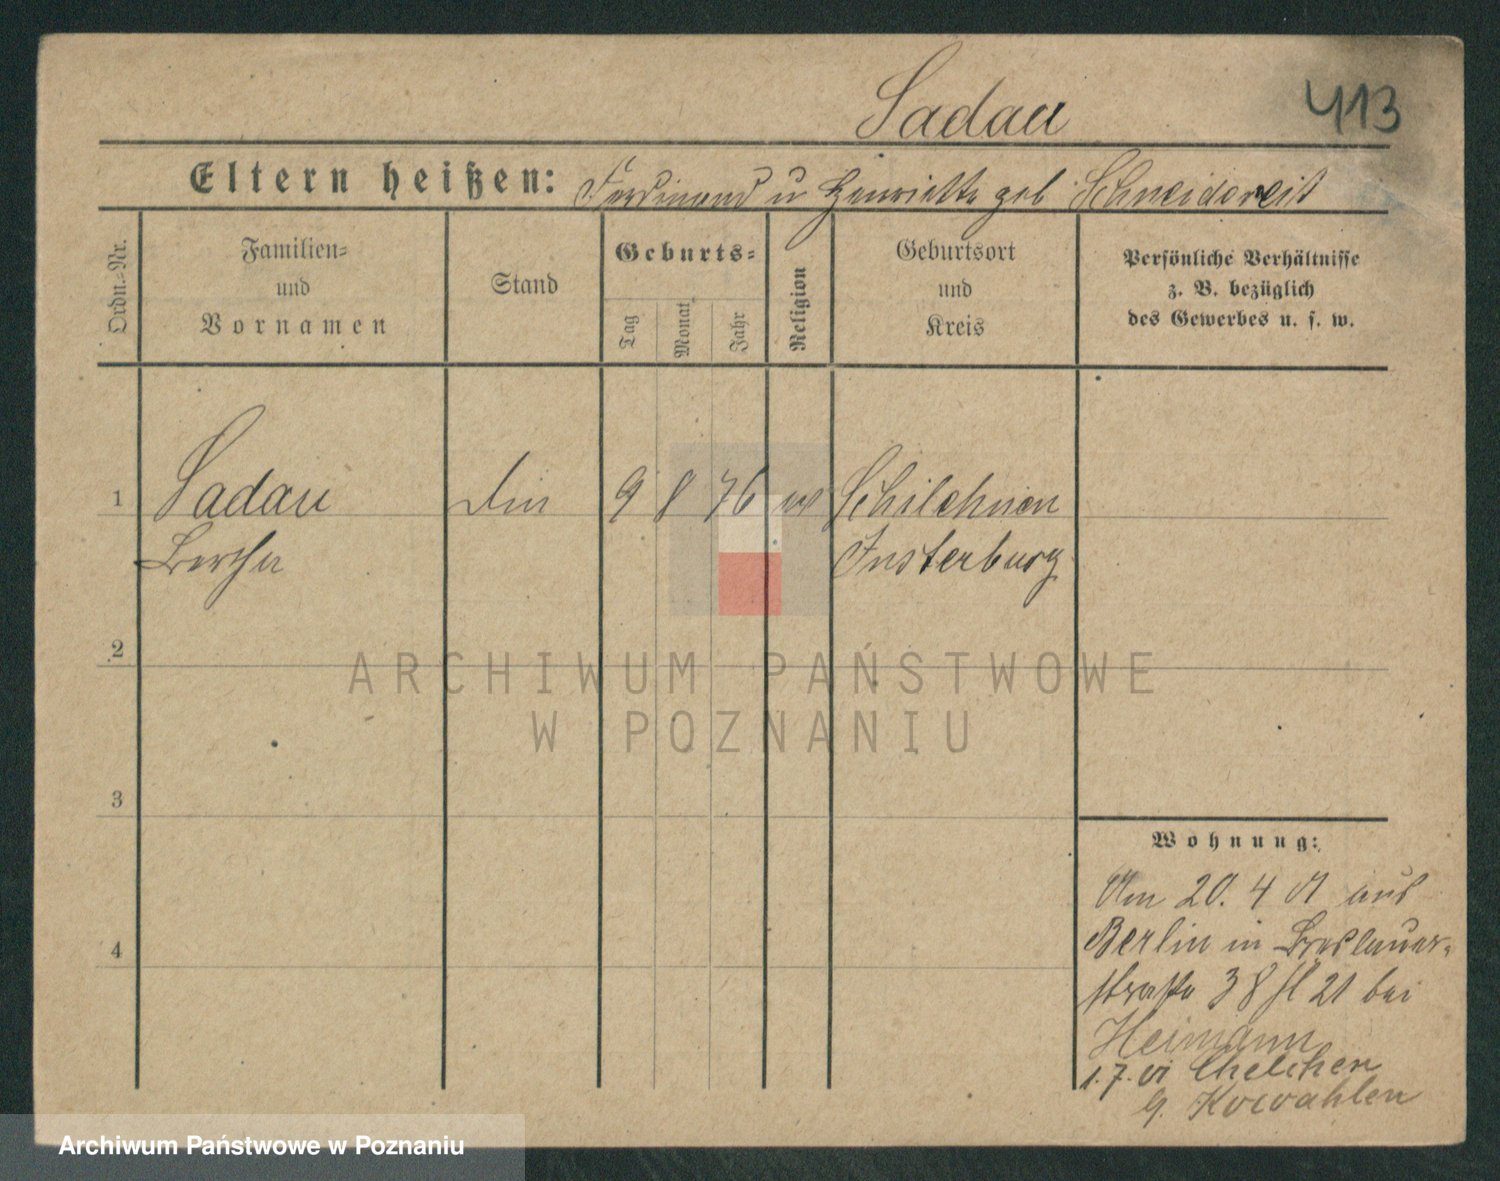 413
Sadau
Eltern heißen: Ferdinand u Henriette geb Schneidereit
Ordn.-Nr.
Familien-
und
Vornamen
Stand
Geburts-
Tag
Monat
Jahr
Religion
Geburtsort
und
Kreis
Persönliche Verhältnisse
z. B. bezüglich
des Gewerbes u. s. w.
1 Sadau Din 9 8 76 Schilehnen
Bertha Insterburg
2
3
4
Wohnung:
Am 20. 4 01 aus
Berlin in Breslauer-
straße 38 21 bei
Heimann
1. 7. 01
g. Kowahlen
ARCHIWUM PAŃSTWOWE
W POZNANIU
Archiwum Państwowe w Poznaniu